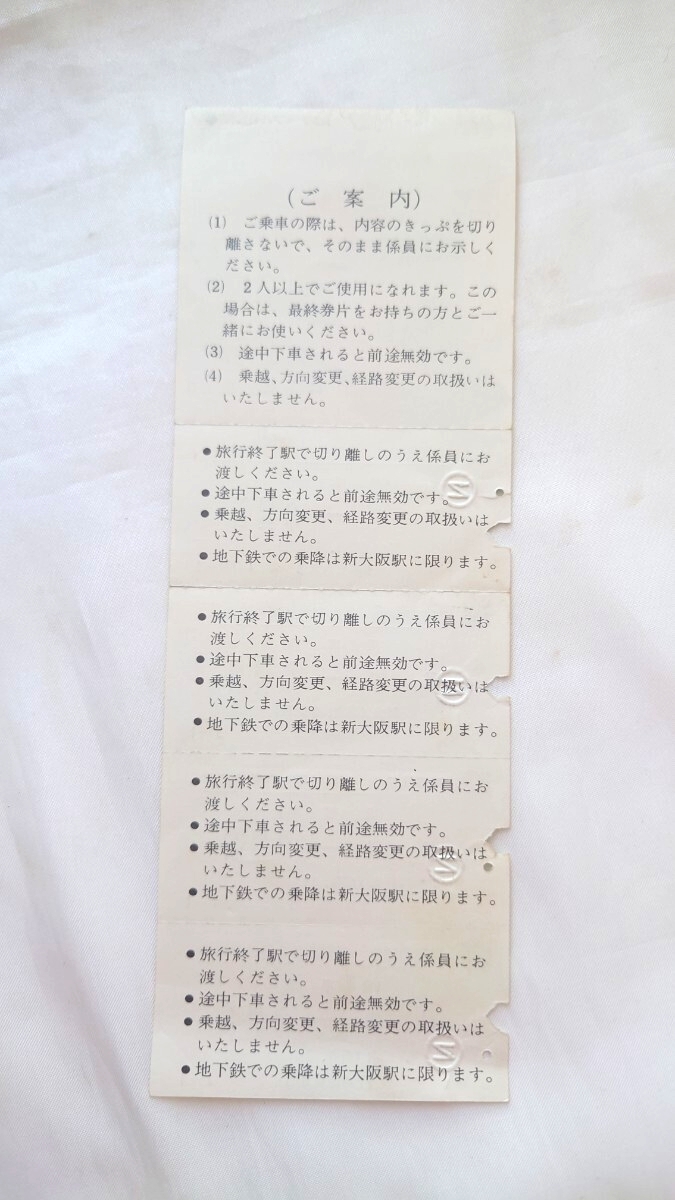 (ご案内)
(1) ご乗車の際は、内容のきっぷを切り
離さないで、そのまま係員にお示しく
ださい。
(2) 2人以上でご使用になれます。この
場合は、最終券片をお持ちの方とご一
緒にお使いください。
(3) 途中下車されると前途無効です。
(4) 乗越、方向変更、経路変更の取扱いは
いたしません。
●旅行終了駅で切り離しのうえ係員にお
渡しください。
●途中下車されると前途無効です。
●乗越、方向変更、経路変更の取扱いは
いたしません。
●地下鉄での乗降は新大阪駅に限ります。
●旅行終了駅で切り離しのうえ係員にお
渡しください。
●途中下車されると前途無効です。
●乗越、方向変更、経路変更の取扱いは
いたしません。
●地下鉄での乗降は新大阪駅に限ります。
●旅行終了駅で切り離しのうえ係員にお
渡しください。
●途中下車されると前途無効です。
●乗越、方向変更、経路変更の取扱いは
いたしません。
●地下鉄での乗降は新大阪駅に限ります。
●旅行終了駅で切り離しのうえ係員にお
渡しください。
●途中下車されると前途無効です。
●乗越、方向変更、経路変更の取扱いは
いたしません。
●地下鉄での乗降は新大阪駅に限ります。